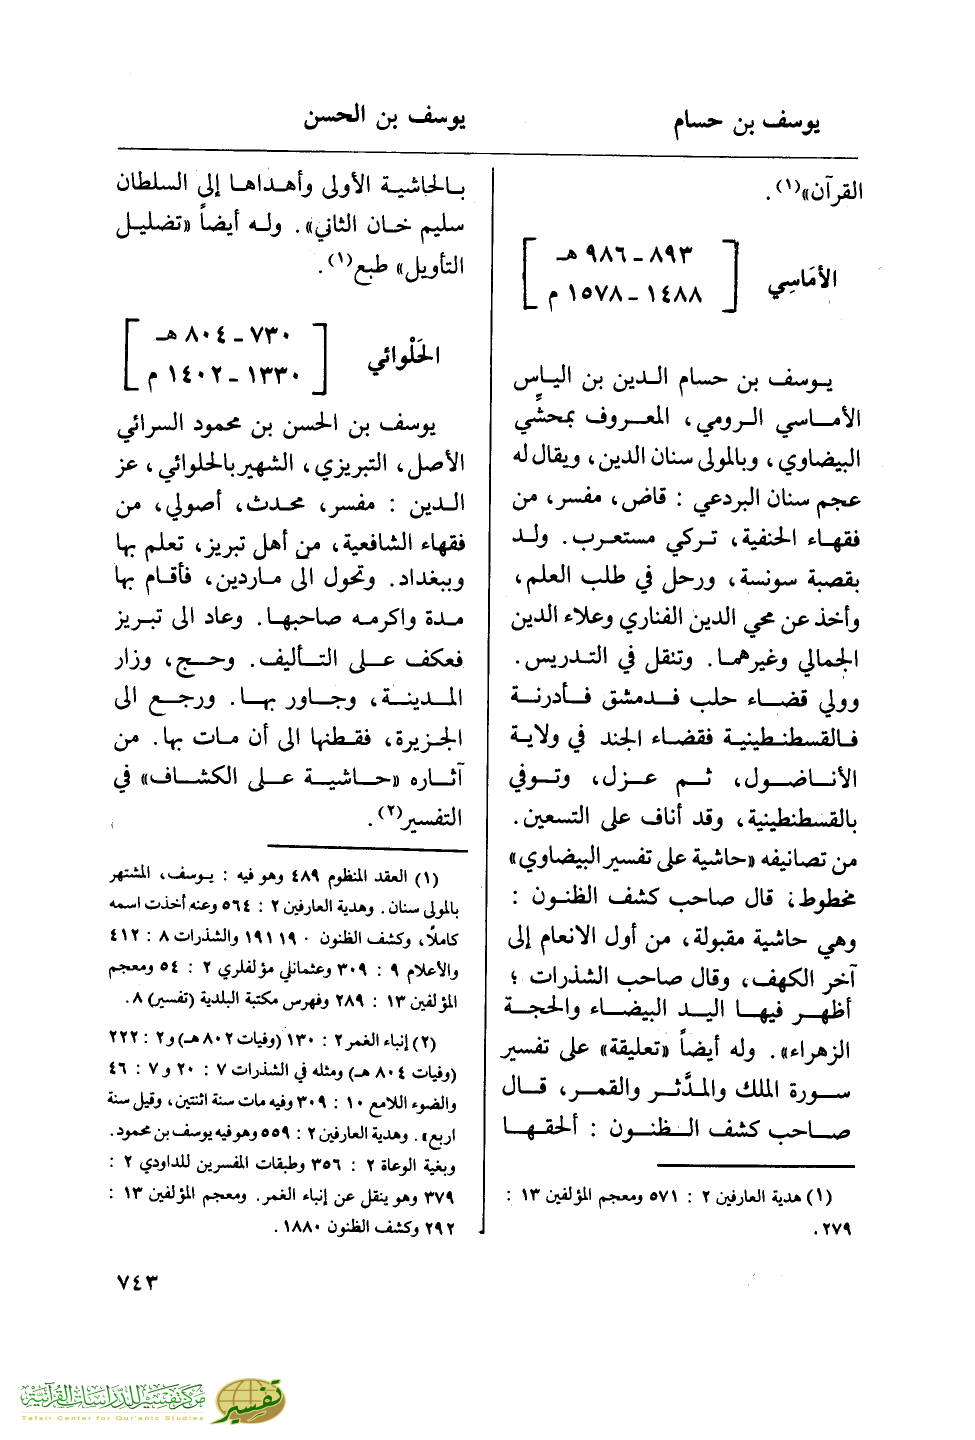 يوسف بن حسام
يوسف بن الحسن
القرآن»(١).
الأمَاسِي
٨٩٣ ـ ٩٨٦ هـ
١٤٨٨ ـ ١٥٧٨ م
يوسف بن حسام الدين بن الياس
الأماسي الرومي، المعروف بمحشّي
البيضاوي، وبالمولى سنان الدين، ويقال له
عجم سنان البردعي : قاض، مفسر، من
فقهاء الحنفية، تركي مستعرب. ولد
بقصبة سونسة، ورحل في طلب العلم،
وأخذ عن محي الدين الفناري وعلاء الدين
الجمالي وغيرهما. وتنقل في التدريس.
وولي قضاء حلب فدمشق فأدرنة
فالقسطنطينية فقضاء الجند في ولاية
الأناضول، ثم عزل، وتوفي
بالقسطنطينية، وقد أناف على التسعين.
من تصانيفه «حاشية على تفسير البيضاوي»
مخطوط؛ قال صاحب كشف الظنون :
وهي حاشية مقبولة، من أول الانعام إلى
آخر الكهف، وقال صاحب الشذرات ؛
أظهر فيها اليد البيضاء والحجة
الزهراء». وله أيضاً «تعليقة» على تفسير
سورة الملك والمدَّثر والقمر، قال
صاحب كشف الظنون : ألحقها
(١) هدية العارفين ٢ : ٥٧١ ومعجم المؤلفين ١٣ :
٢٧٩.
بالحاشية الأولى وأهداها إلى السلطان
سليم خان الثاني». وله أيضاً «تضليل
التأويل» طبع(١).
الحَلْوائي
٧٣٠ ـ ٨٠٤ هـ
١٣٣٠ ـ ١٤٠٢ م
يوسف بن الحسن بن محمود السرائي
الأصل، التبريزي، الشهير بالحلوائي، عز
الدين : مفسر، محدث، أصولي، من
فقهاء الشافعية، من أهل تبريز، تعلم بها
وببغداد. وتحول الى ماردين، فأقام بها
مدة واكرمه صاحبها. وعاد الى تبريز
فعكف على التأليف. وحج، وزار
المدينة، وجاور بها. ورجع الى
الجزيرة، فقطنها الى أن مات بها. من
آثاره «حاشية على الكشاف» في
التفسير(٢).
(١) العقد المنظوم ٤٨٩ وهو فيه : يوسف، المشتهر
بالمولى سنان. وهدية العارفين ٢ : ٥٦٤ وعنه أخذت اسمه
كاملًا، وكشف الظنون ١٩٠ ١٩١ والشذرات ٨ : ٤١٢
والأعلام ٩ : ٣٠٩ وعثمانلي مؤلفلري ٢ : ٥٤ ومعجم
المؤلفين ١٣ : ٢٨٩ وفهرس مكتبة البلدية (تفسير) ٨.
(٢) إنباء الغمر ٢ : ١٣٠ (وفيات ٨٠٢ هـ) و٢ : ٢٢٢
(وفيات ٨٠٤ هـ) ومثله في الشذرات ٧ : ٢٠ و ٧ : ٤٦
والضوء اللامع ١٠ : ٣٠٩ وفيه مات سنة اثنتين، وقيل سنة
اربع». وهدية العارفين ٢ : ٥٥٩ وهو فيه يوسف بن محمود.
وبغية الوعاة ٢ : ٣٥٦ وطبقات المفسرين للداودي ٢ :
٣٧٩ وهو ينقل عن إنباء الغمر. ومعجم المؤلفين ١٣ :
٢٩٢ وكشف الظنون ١٨٨٠.
٧٤٣
مركز تفسير للدراسات القرآنية
Tafsir Center for Qur'anic Studies
تفسير